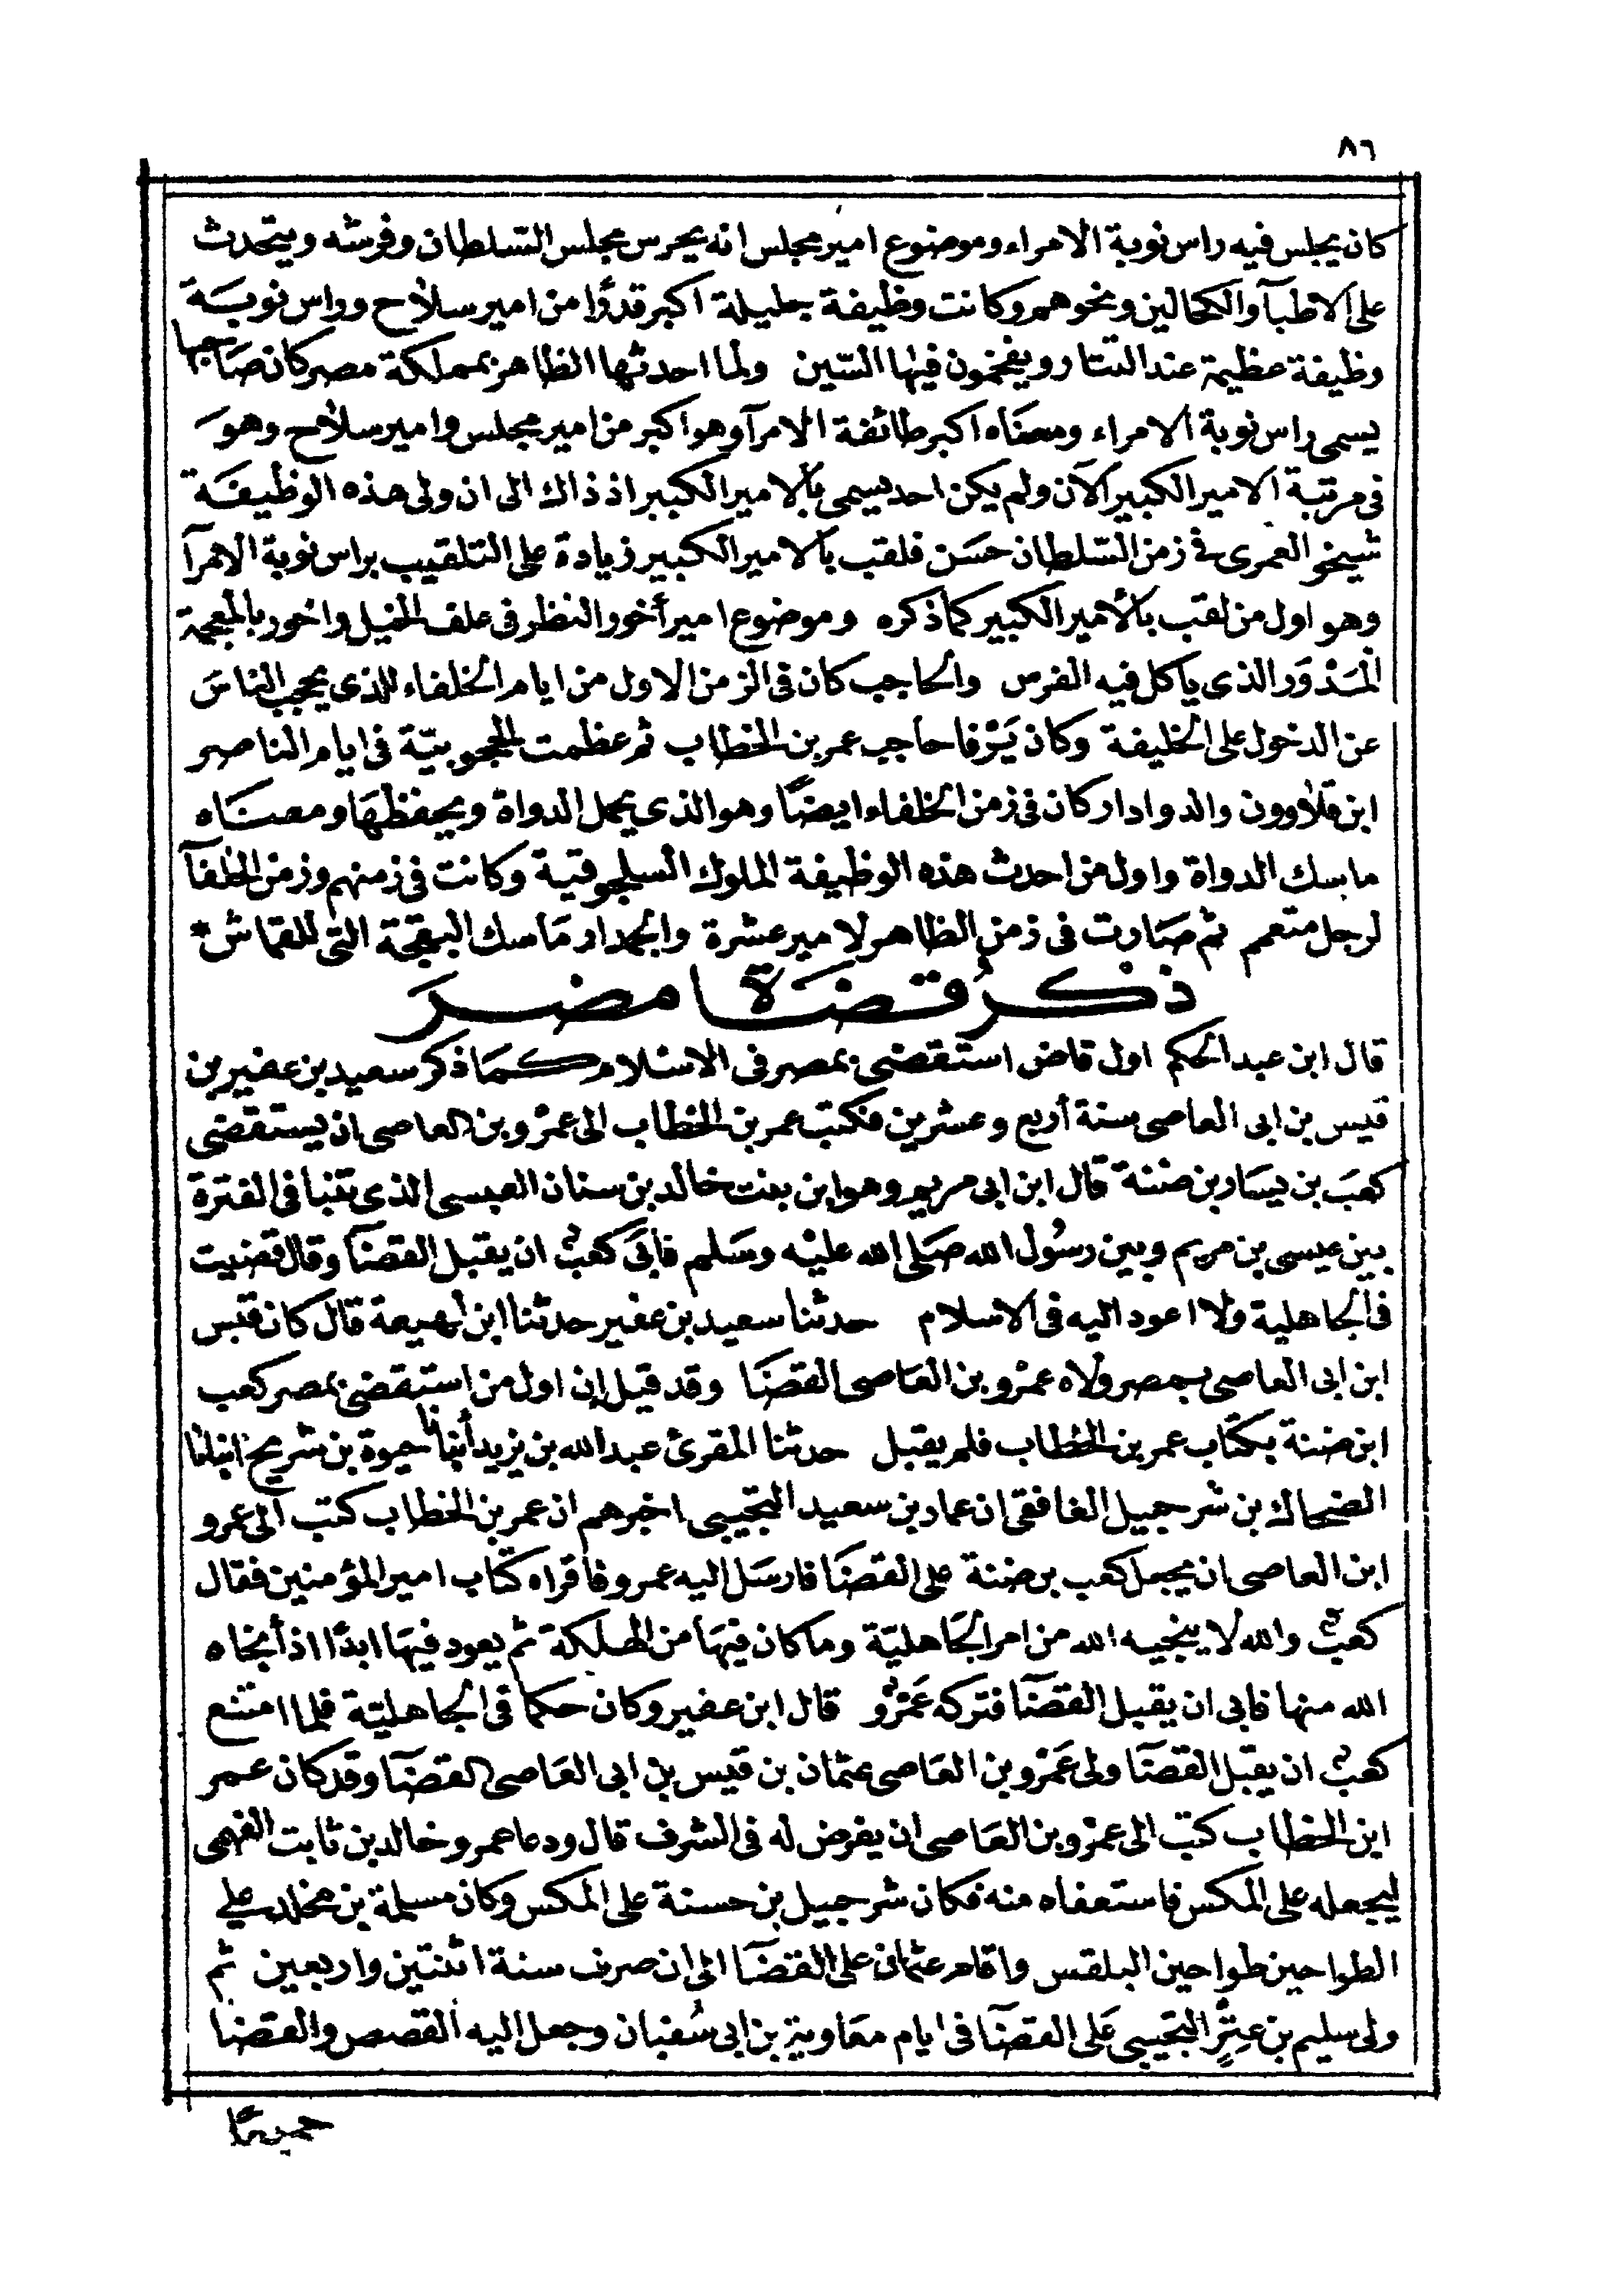 ٨٦
كان يجلس فيه راس نوبة الامراء وموضوع امير مجلس انه يحرس مجلس السلطان وفرشه ويتحدث
على الاطبآ والكحالين ونحوهم وكانت وظيفة جليلة اكبر قدرًا من امير سلاح وراس نوبة
وظيفة عظيمة عند التتار ويفخمون فيها السّين ولما احدثها الظاهر بمملكة مصر كان صاحبها
يسمى راس نوبة الامراء ومعناه اكبر طائفة الامرآ وهو اكبر من امير مجلس وامير سلاح وهو
فى مرتبة الامير الكبير الآن ولم يكن احد يسمى بالامير الكبير اذ ذاك الى ان ولى هذه الوظيفة
شيخو العمرى فى زمن السّلطان حسن فلقب بالامير الكبير زيادة على التلقيب براس نوبة الامرآ
وهو اول من لقب بالأمير الكبير كما ذكره وموضوع امير أخور النظر فى علف الخيل واخور بالمعجمة
المَذْوَر الذى ياكل فيه الفرس والحاجب كان فى الزمن الاول من ايام الخلفاء للذى يحجب الناس
عن الدخول على الخليفة وكان يَرْفا حاجب عمر بن الخطاب ثم عظمت الحجوبيّة فى ايام الناصر
ابن قلاوون والدوادار كان فى زمن الخلفاء ايضًا وهو الذى يحمل الدواة ويحفظها ومعناه
ماسك الدواة واول من احدث هذه الوظيفة الملوك السلجوقية وكانت فى زمنهم وزمن الخلفآ
لرجل متعمم ثم صارت فى زمن الظاهر لامير عشرة والجمدار ماسك البقجة التى للقماش *
ذكر قضاة مصر
قال ابن عبد الحكم اول قاض استقضى بمصر فى الاسلام كما ذكر سعيد بن عفير بن
قيس بن ابى العاصى سنة أربع وعشرين فكتب عمر بن الخطاب الى عمْرو بن العاصى ان يستقضى
كعب بن يسار بن ضنة قال ابن ابى مريم وهو ابن بنت خالد بن سنان العبسى الذى تنبا فى الفترة
بين عيسى بن مريم وبين رسُول الله صَلى الله عليْه وسَلم فأبَى كعبٌ ان يقبل القضآ وقال قضيت
فى الجاهلية ولا اعود اليه فى الاسلام حدثنا سعيد بن عفير حدثنا ابن لهيعة قال كان قيس
ابن ابى العاصى بمصر ولاه عمْرو بن العَاصى القضَا وقد قيل إن اول من استقضى بمصر كعب
ابن ضنة بكتاب عمر بن الخطاب فلم يقبل حدثنا المقرئ عبد الله بن يزيد أنبأنا حيوة بن شريح انبانا
الضحاك بن شرحبيل الغافقى ان عمار بن سعيد التجيبى اخبرهم ان عمر بن الخطاب كتب الى عمرو
ابن العاصى ان يجعل كعب بن ضنة على القضَا فارسَل اليه عمرو فاقراه كتاب امير المؤمنين فقال
كعبٌ والله لا ينجيه الله من امر الجَاهليّة وما كان فيهَا من الهلكة ثم يعود فيهَا ابدًا اذ أنجاه
الله منها فابى ان يقبل القضآ فتركه عَمْرٌو قال ابن عفير وكان حكما فى الجاهليّة فلما امتنع
كعبٌ ان يقبل القضآ ولى عَمْرو بن العَاصى عثمان بن قيس بن ابى العَاصى القضآ وقد كان عمر
ابن الخطاب كتب الى عمْرو بن العَاصى ان يفرض له فى الشرف قال ودعا عمرو خالد بن ثابت الفهمى
ليجعله على المكس فاستعفاه منه فكان شرحبيل بن حسنة على المكس وكان مسيلمة بن مخلد على
الطواحين طواحين البلقس واقام عثمان على القضآ الى ان صرف سنة اثنتين واربعين ثم
ولى سليم بن عِتْرٍ التجيبى عَلى القضآ فى ايام معَاوية بن ابى سُفيان وجعل اليه القصص والقضا
جميعًا